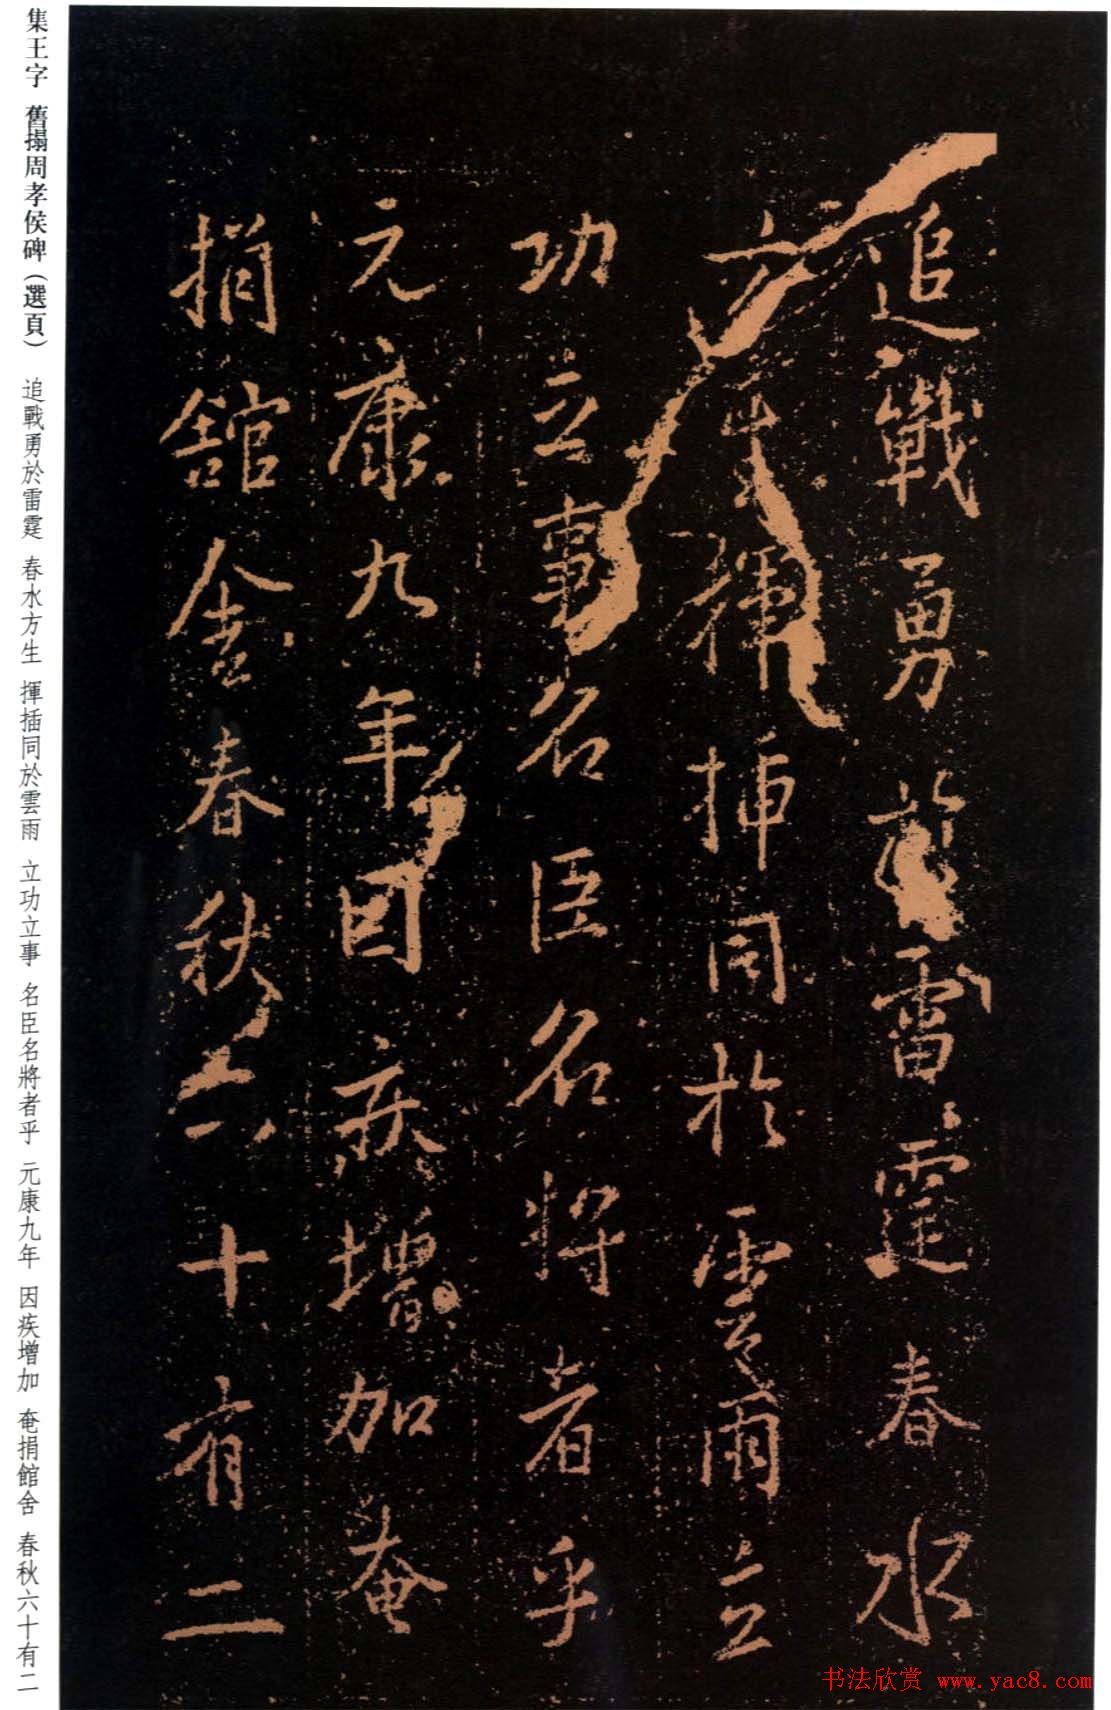 追戰勇於雷霆春水
方生揮插同於雲雨立
功立事名臣名將者乎
元康九年因疾增加奄
捐館舍春秋六十有二
集王字 舊搨周孝侯碑(選頁) 追戰勇於雷霆 春水方生 揮插同於雲雨 立功立事 名臣名將者乎 元康九年 因疾增加 奄捐館舍 春秋六十有二
书法欣赏 www.yac8.com